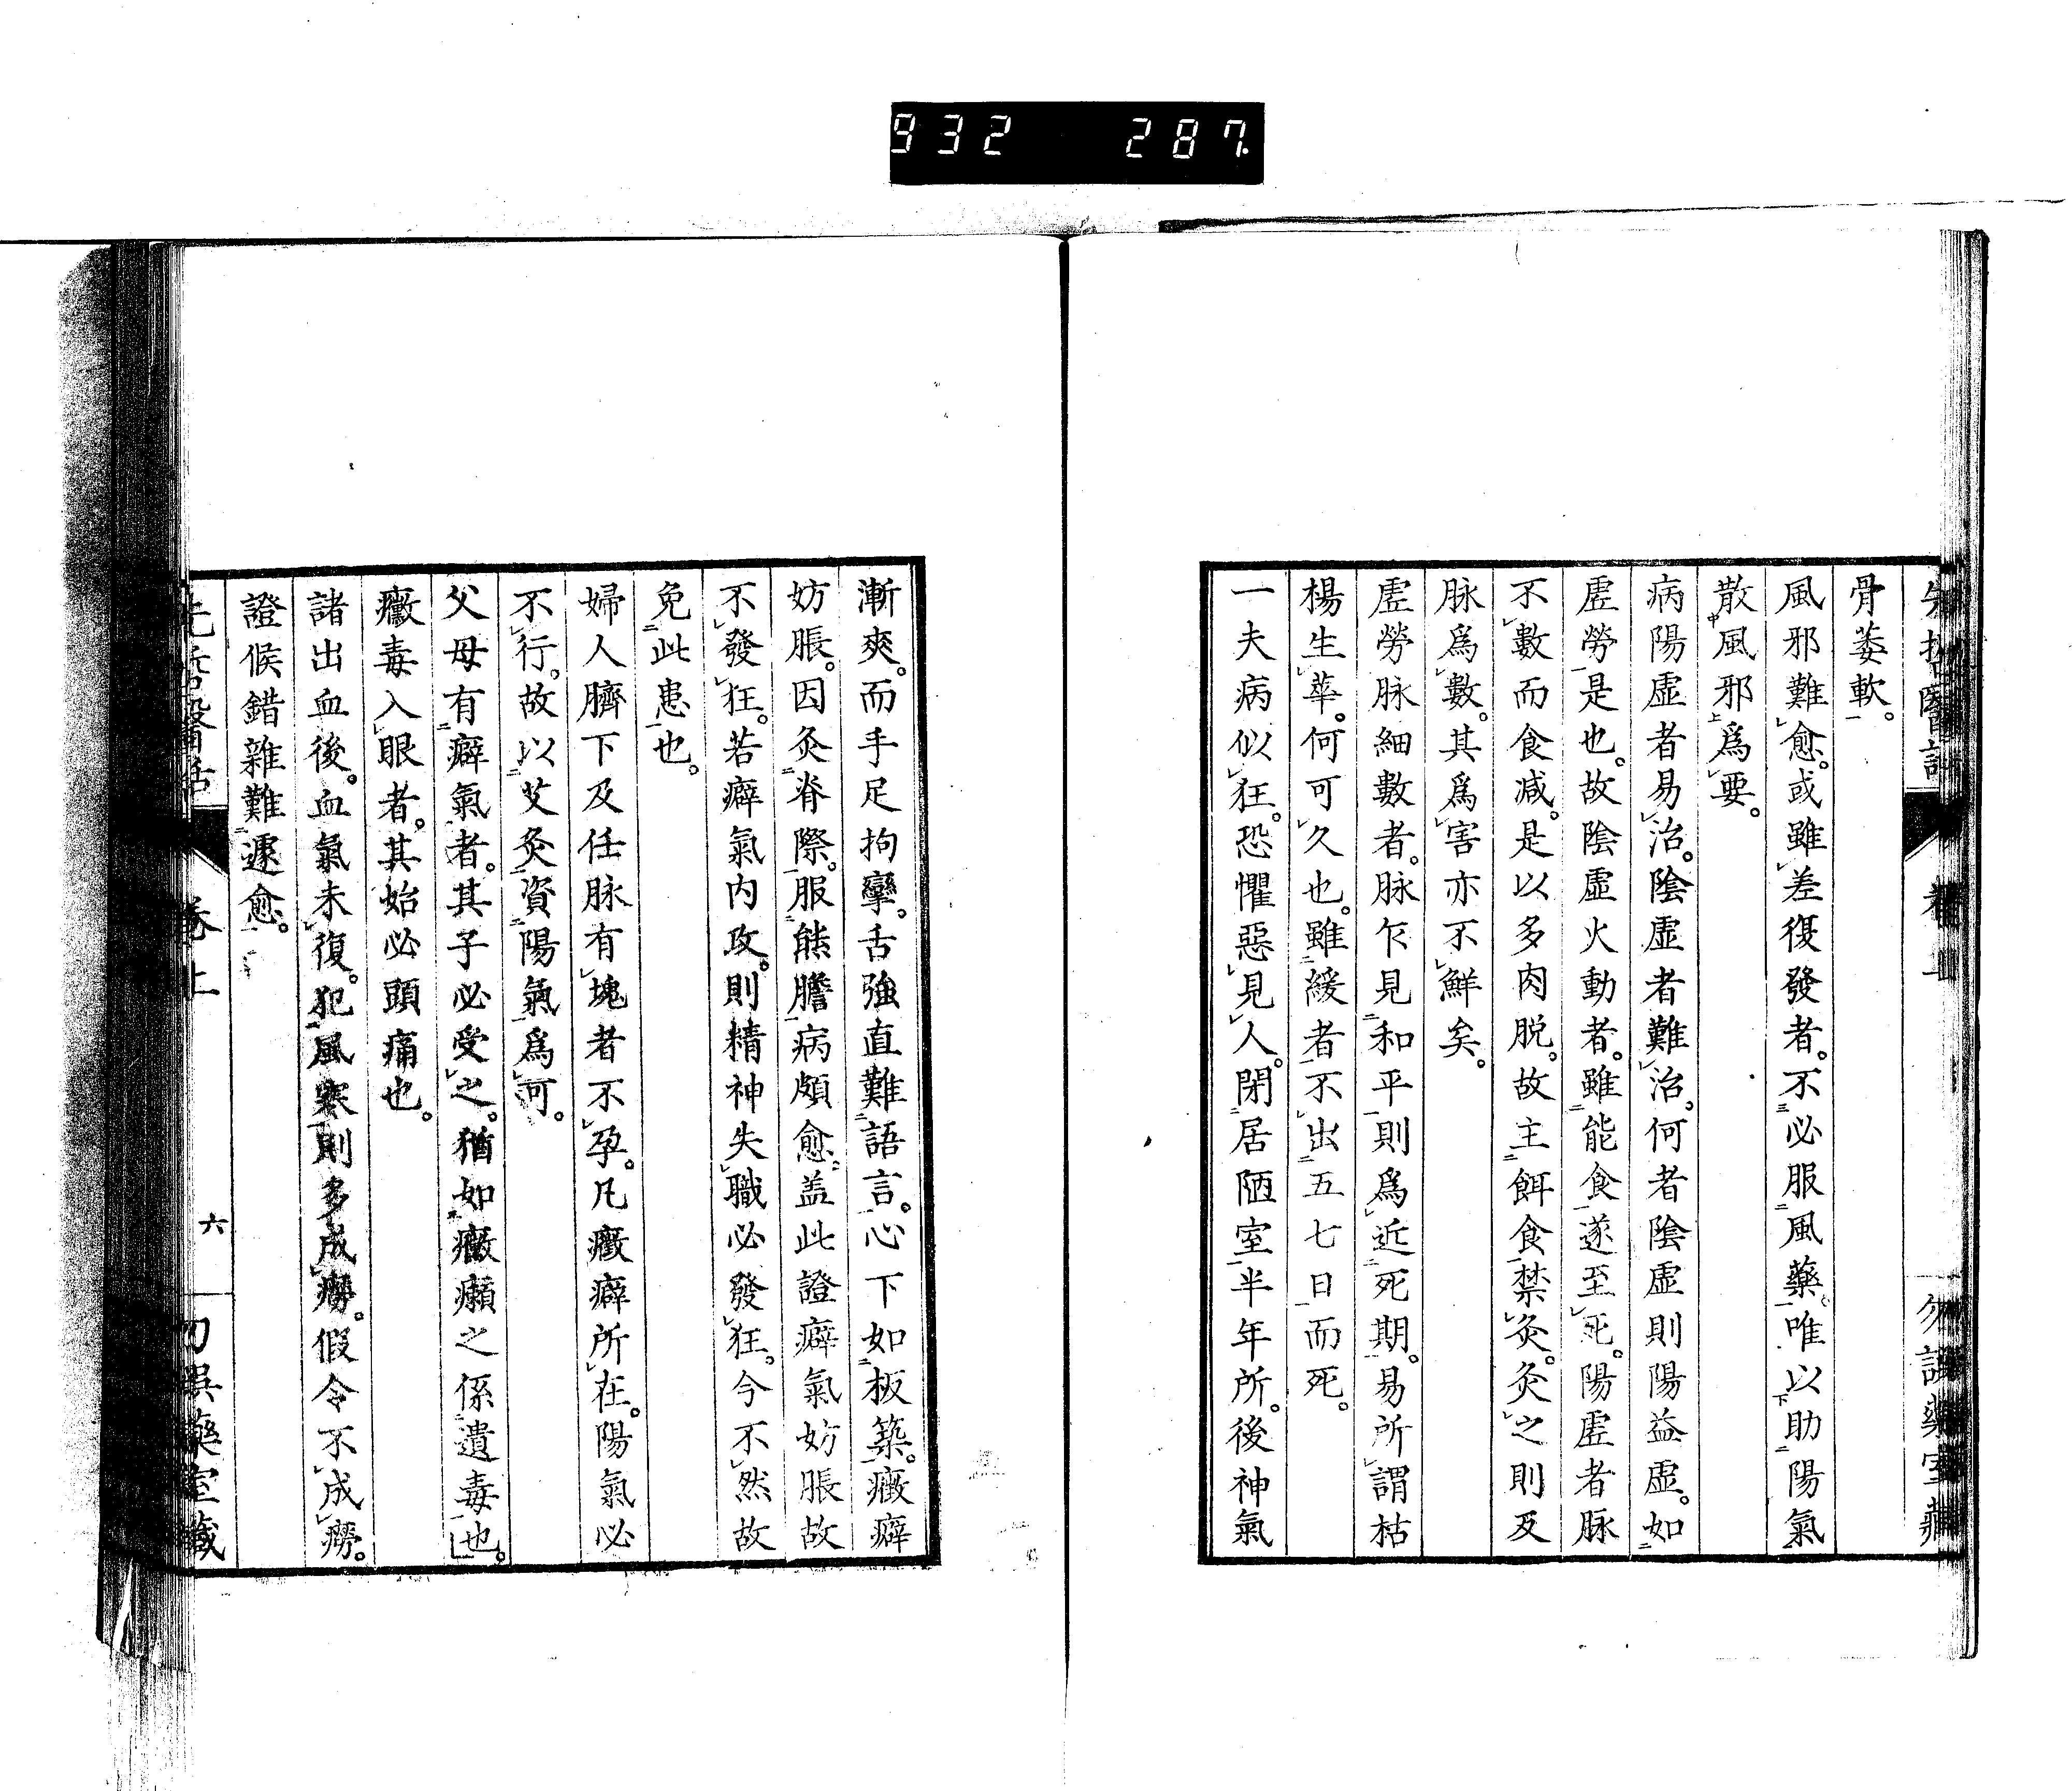 932 287.
骨萎軟。
風邪難愈。或雖差復發者。不必服風藥。唯以助陽氣
散風邪爲要。
病陽虛者易治。陰虛者難治。何者陰虛則陽益虛。如
虛勞是也。故陰虛火動者。雖能食遂至死。陽虛者脉
不數而食減。是以多肉脱。故主餌食禁灸。灸之則反
脉爲數。其爲害亦不鮮矣。
虛勞脉細數者。脉乍見和平則爲近死期。易所謂枯
楊生華。何可久也。雖緩者不出五七日而死。
一夫病似狂。恐懼惡見人。閉居陋室半年所。後神氣
漸爽。而手足拘攣。舌強直難語言。心下如板築。癥癖
妨脹。因灸脊際。服熊膽病頗愈。盖此證癖氣妨脹故
不發狂。若癖氣内攻。則精神失職必發狂。今不然故
免此患也。
婦人臍下及任脉有塊者不孕。凡癥癖所在。陽氣必
不行。故以艾灸資陽氣爲可。
父母有癖氣者。其子必受之。猶如黴癩之係遺毒也。
黴毒入眼者。其始必頭痛也。
諸出血後。血氣未復。犯風寒則多成癆。假令不成癆。
證候錯雜難遽愈。
先哲醫話 卷上 六 勿誤藥室藏